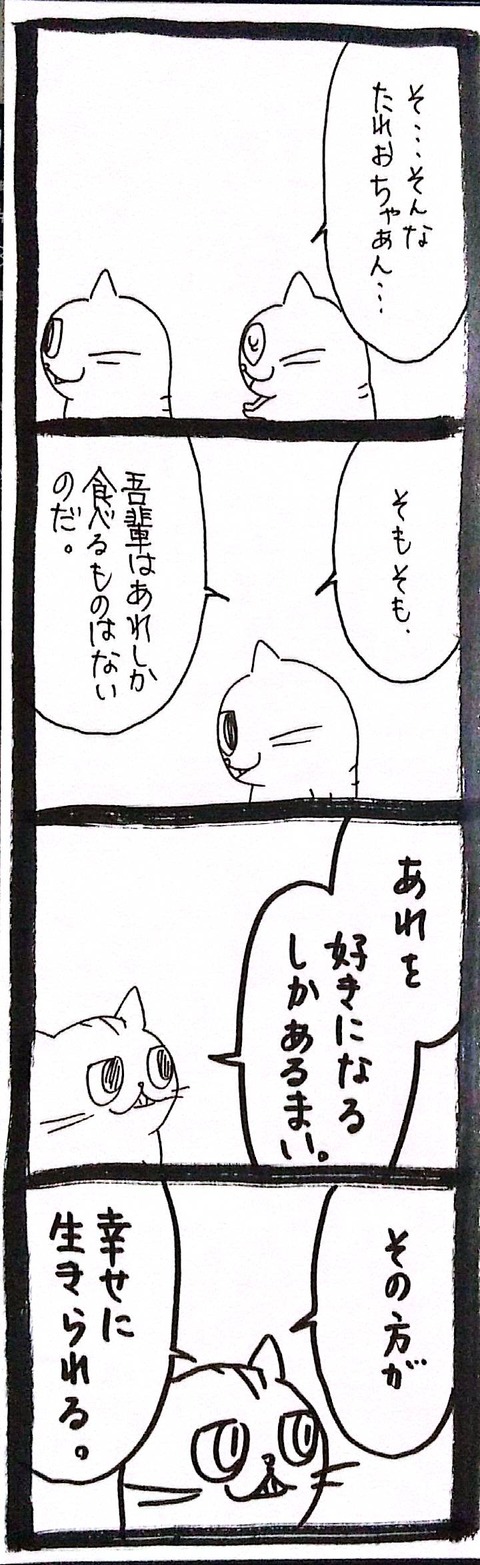 そ…そんな
たれおちゃあん…
そもそも、
吾輩はあれしか
食べるものはない
のだ。
あれを
好きになる
しかあるまい。
その方が
幸せに
生きられる。